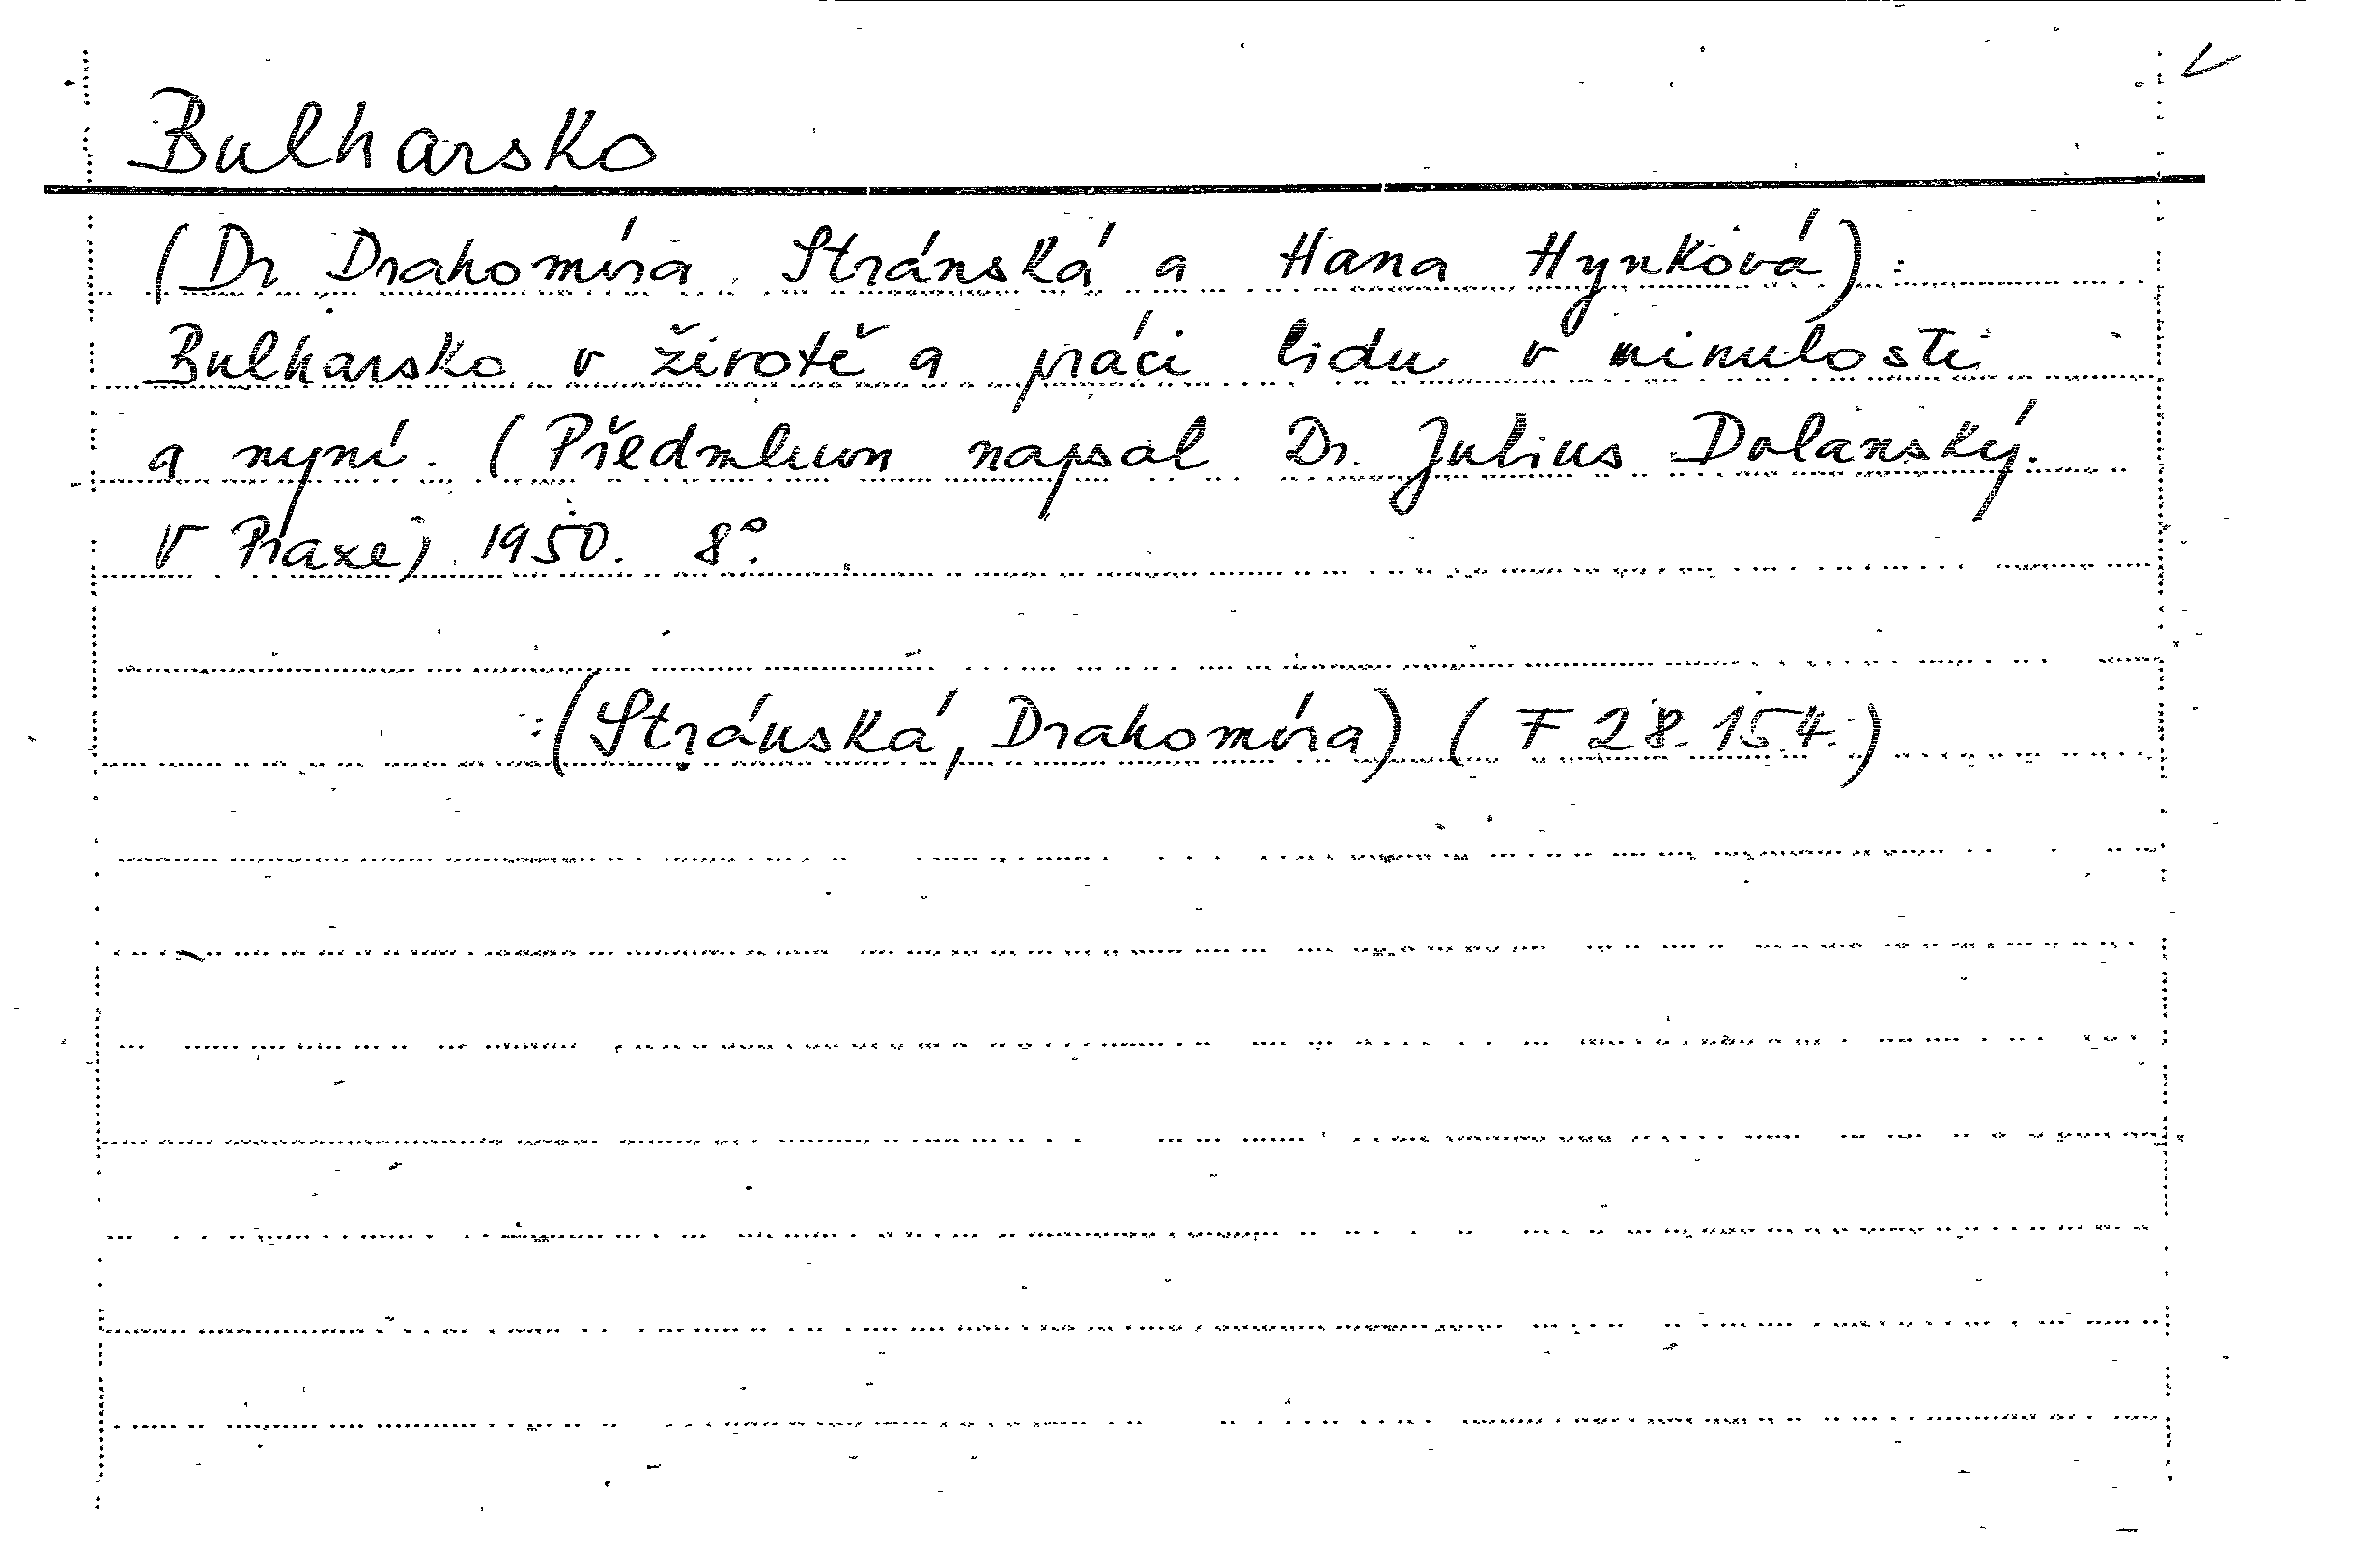 Bulharsko
(Dr Drahomíra Stránská a Hana Hynková):
Bulharsko v životě a práci lidu v minulosti
a nyní. (Předmluvu napsal Dr. Julius Dolanský.
V Praze) 1950. 8°.
:(Stránská, Drahomíra) (F 28.154.)